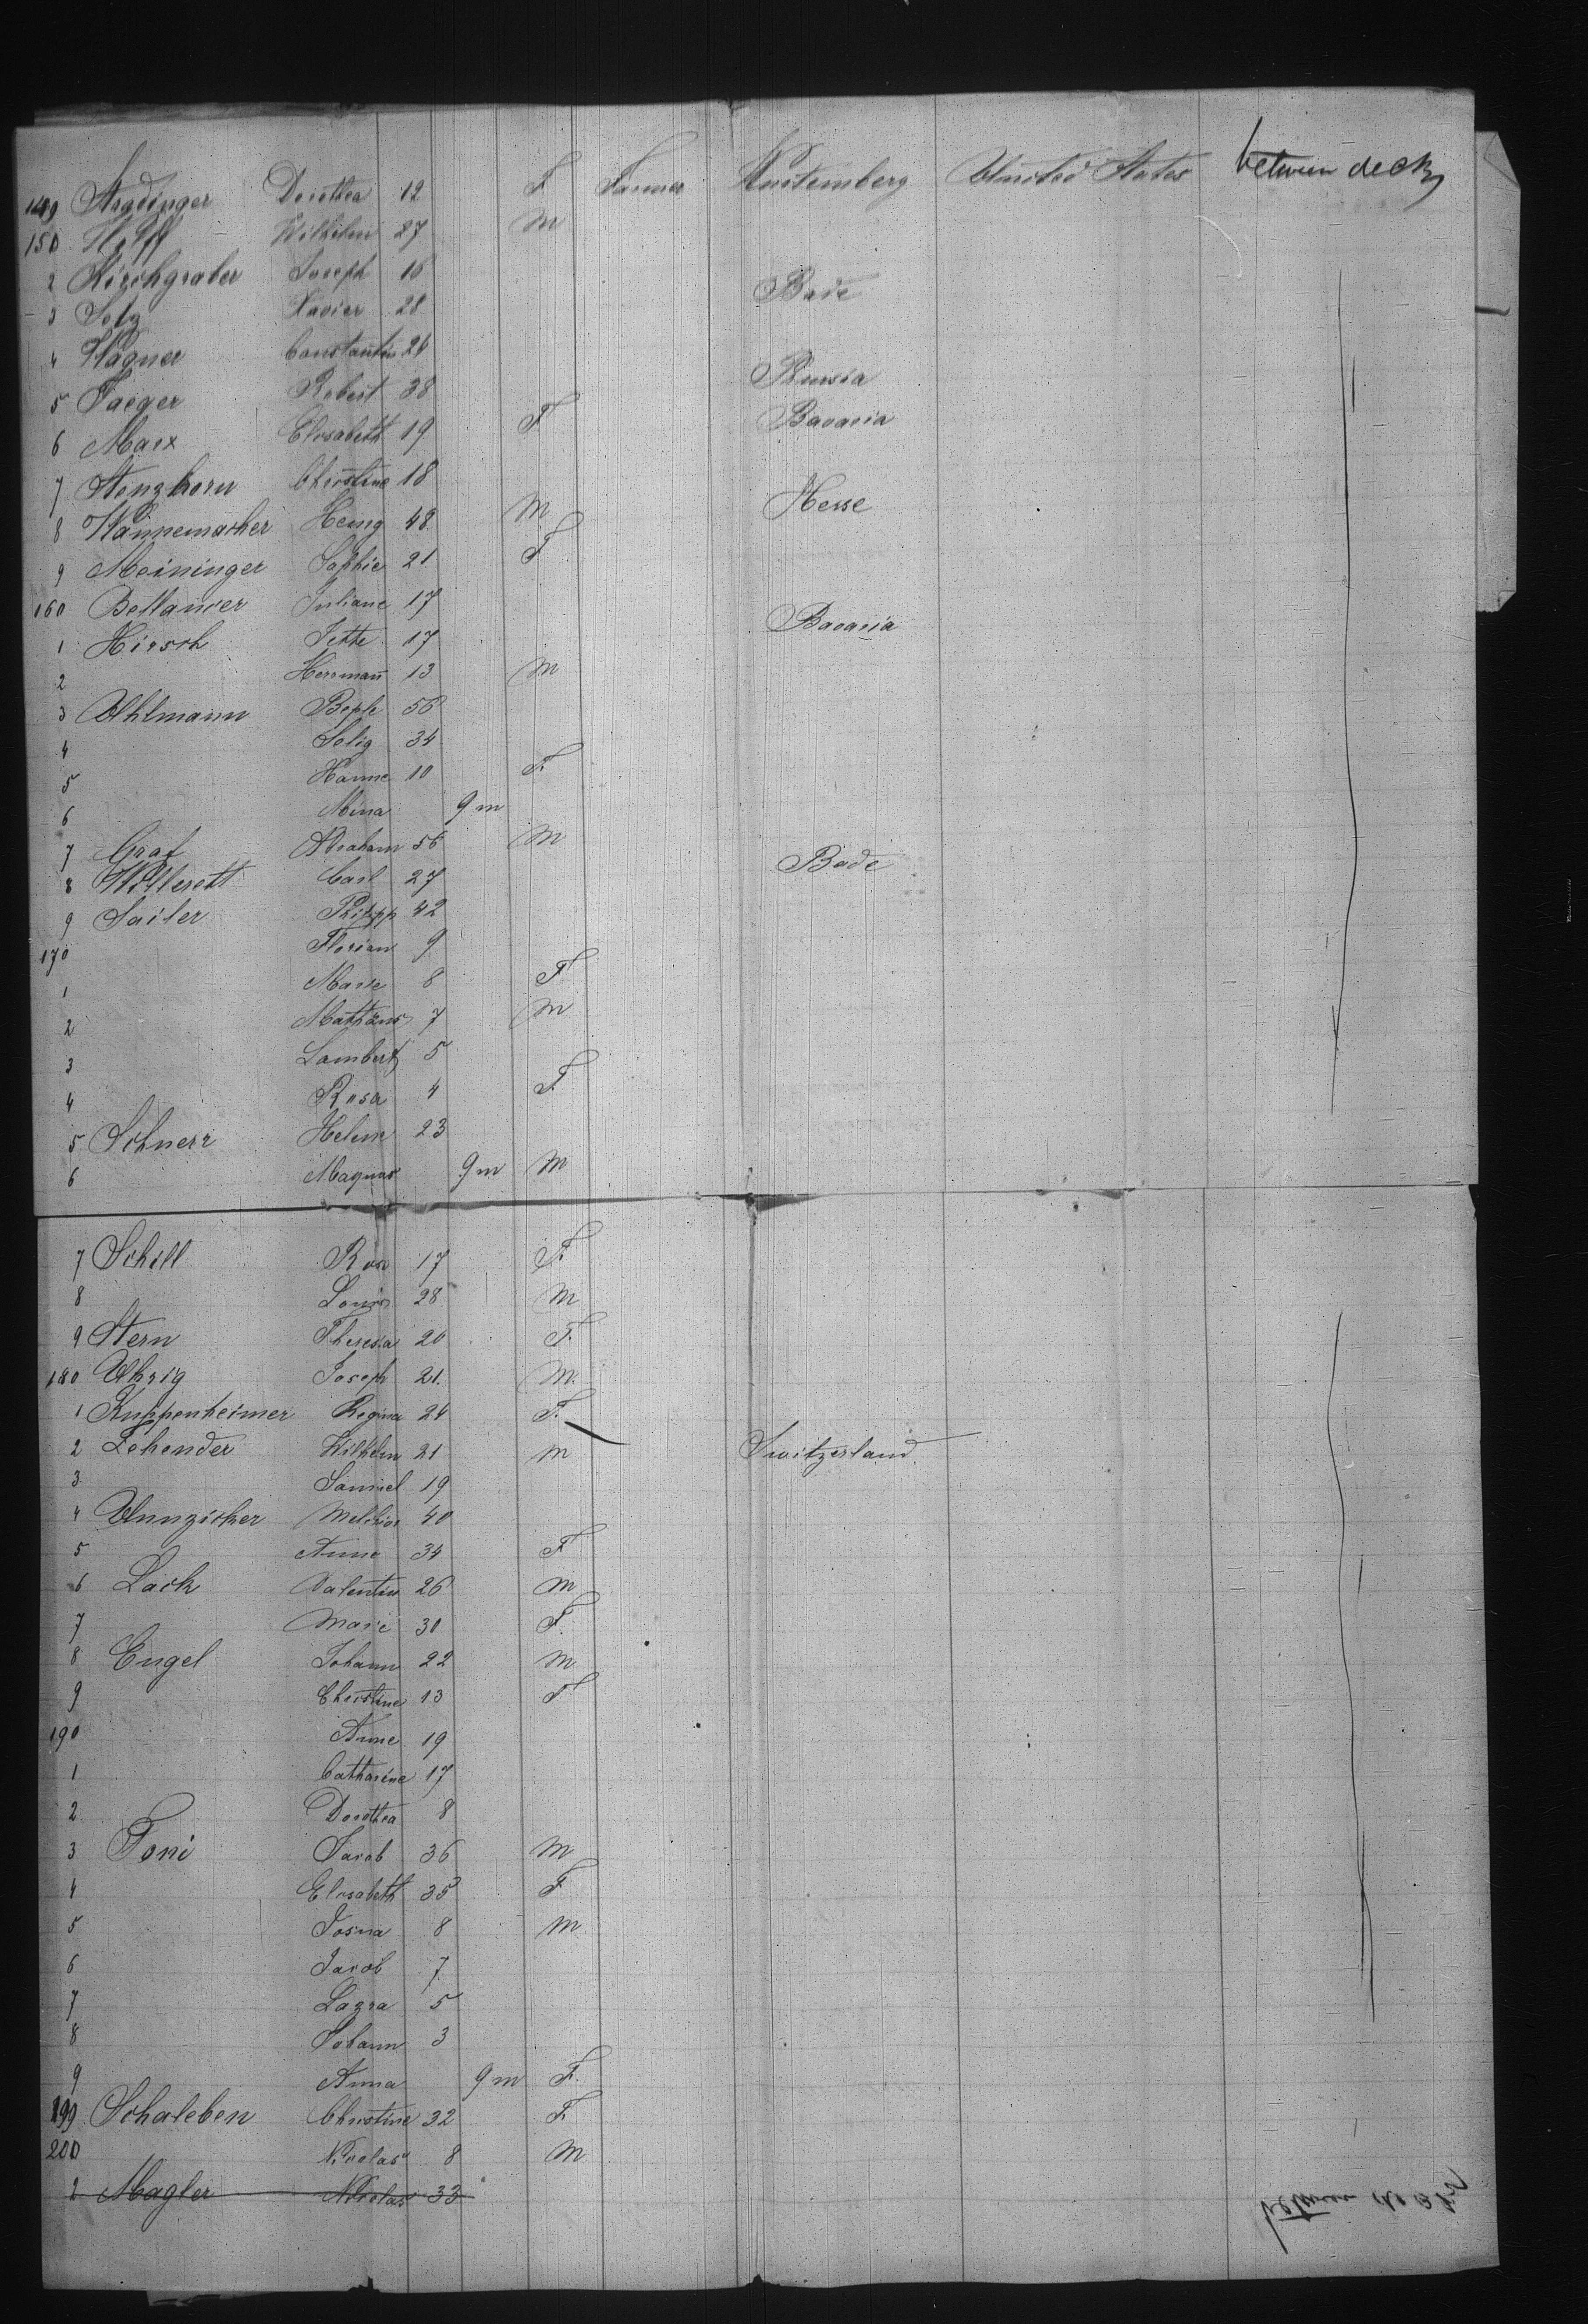 149 Aradinger Dorothea 12 F Farmer Wurtemberg United States between decks
150 Hoff Wilhelm 27 m
2 Kirchgraber Joseph 16 Bade
3 Solz Xavier 28
4 Wagner Constantin 24
5 Jaeger Robert 38 Prussia
6 Marx Elisabeth 19 F Bavaria
7 Stenzhorn Christine 18
8 Wannemacher Heinrig 48 m Hesse
9 Meininger Sophie 21 F
160 Bellander Juliane 17
1 Hirsch Jette 17 Bavaria
2 Herrmann 13 m
3 Uhlmann 56
4 Selig 34
5 Hanne 10 F
6 Mina 9 m
7 Graf Abraham 56 m
8 Willerett Carl 27 Bade
9 Sailer Philipp 42
170 Florian 9
1 Marie 8 F
2 Mathäus 7 m
3 Lambert 5
4 Rosa 4 F
5 Schnerr Helene 23
6 Magnus 9 m m
7 Schill Rosa 17 F
8 Louis 28 m
9 Stern Theresia 20 F.
180 Uhrig Joseph 21. m.
1 Kuppenheimer Regina 24 F.
2 Zehender Wilhelm 21 m Switzerland.
3 Samuel 19
4 Unnzicker Melchior 40
5 Anne 34 F
6 Lack Valentin 26 m
7 Marie 30 F.
8 Engel Johann 22 m
9 Christine 13 F
190 Anne 19
1 Catharine 17
2 Dorothea 8
3 Toni Jacob 36 m
4 Elisabeth 35 F
5 Josua 8 m
6 Jacob 7
7 Lazra 5
8 Johann 3
9 Anna 9 m F.
199 Schaleben Christine 32 F.
200 Nicolas 8 m
2 Magler Nicolas 33
between decks